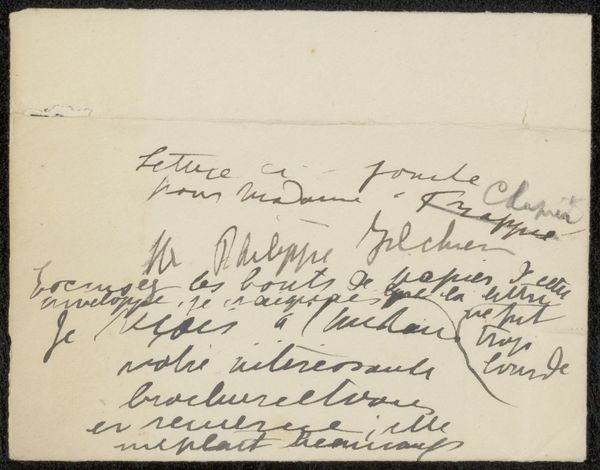 Lettre ci-jointe
pour Madame Frappié Chapin
Mr Philippe Zilcken
Excusez les bouts de papier de cette
enveloppe, je craignais que la lettre
ne fût
Je reçois à l'instant trop
lourde
votre intéressante
brochure et vous
en remercie; elle
me plaît beaucoup